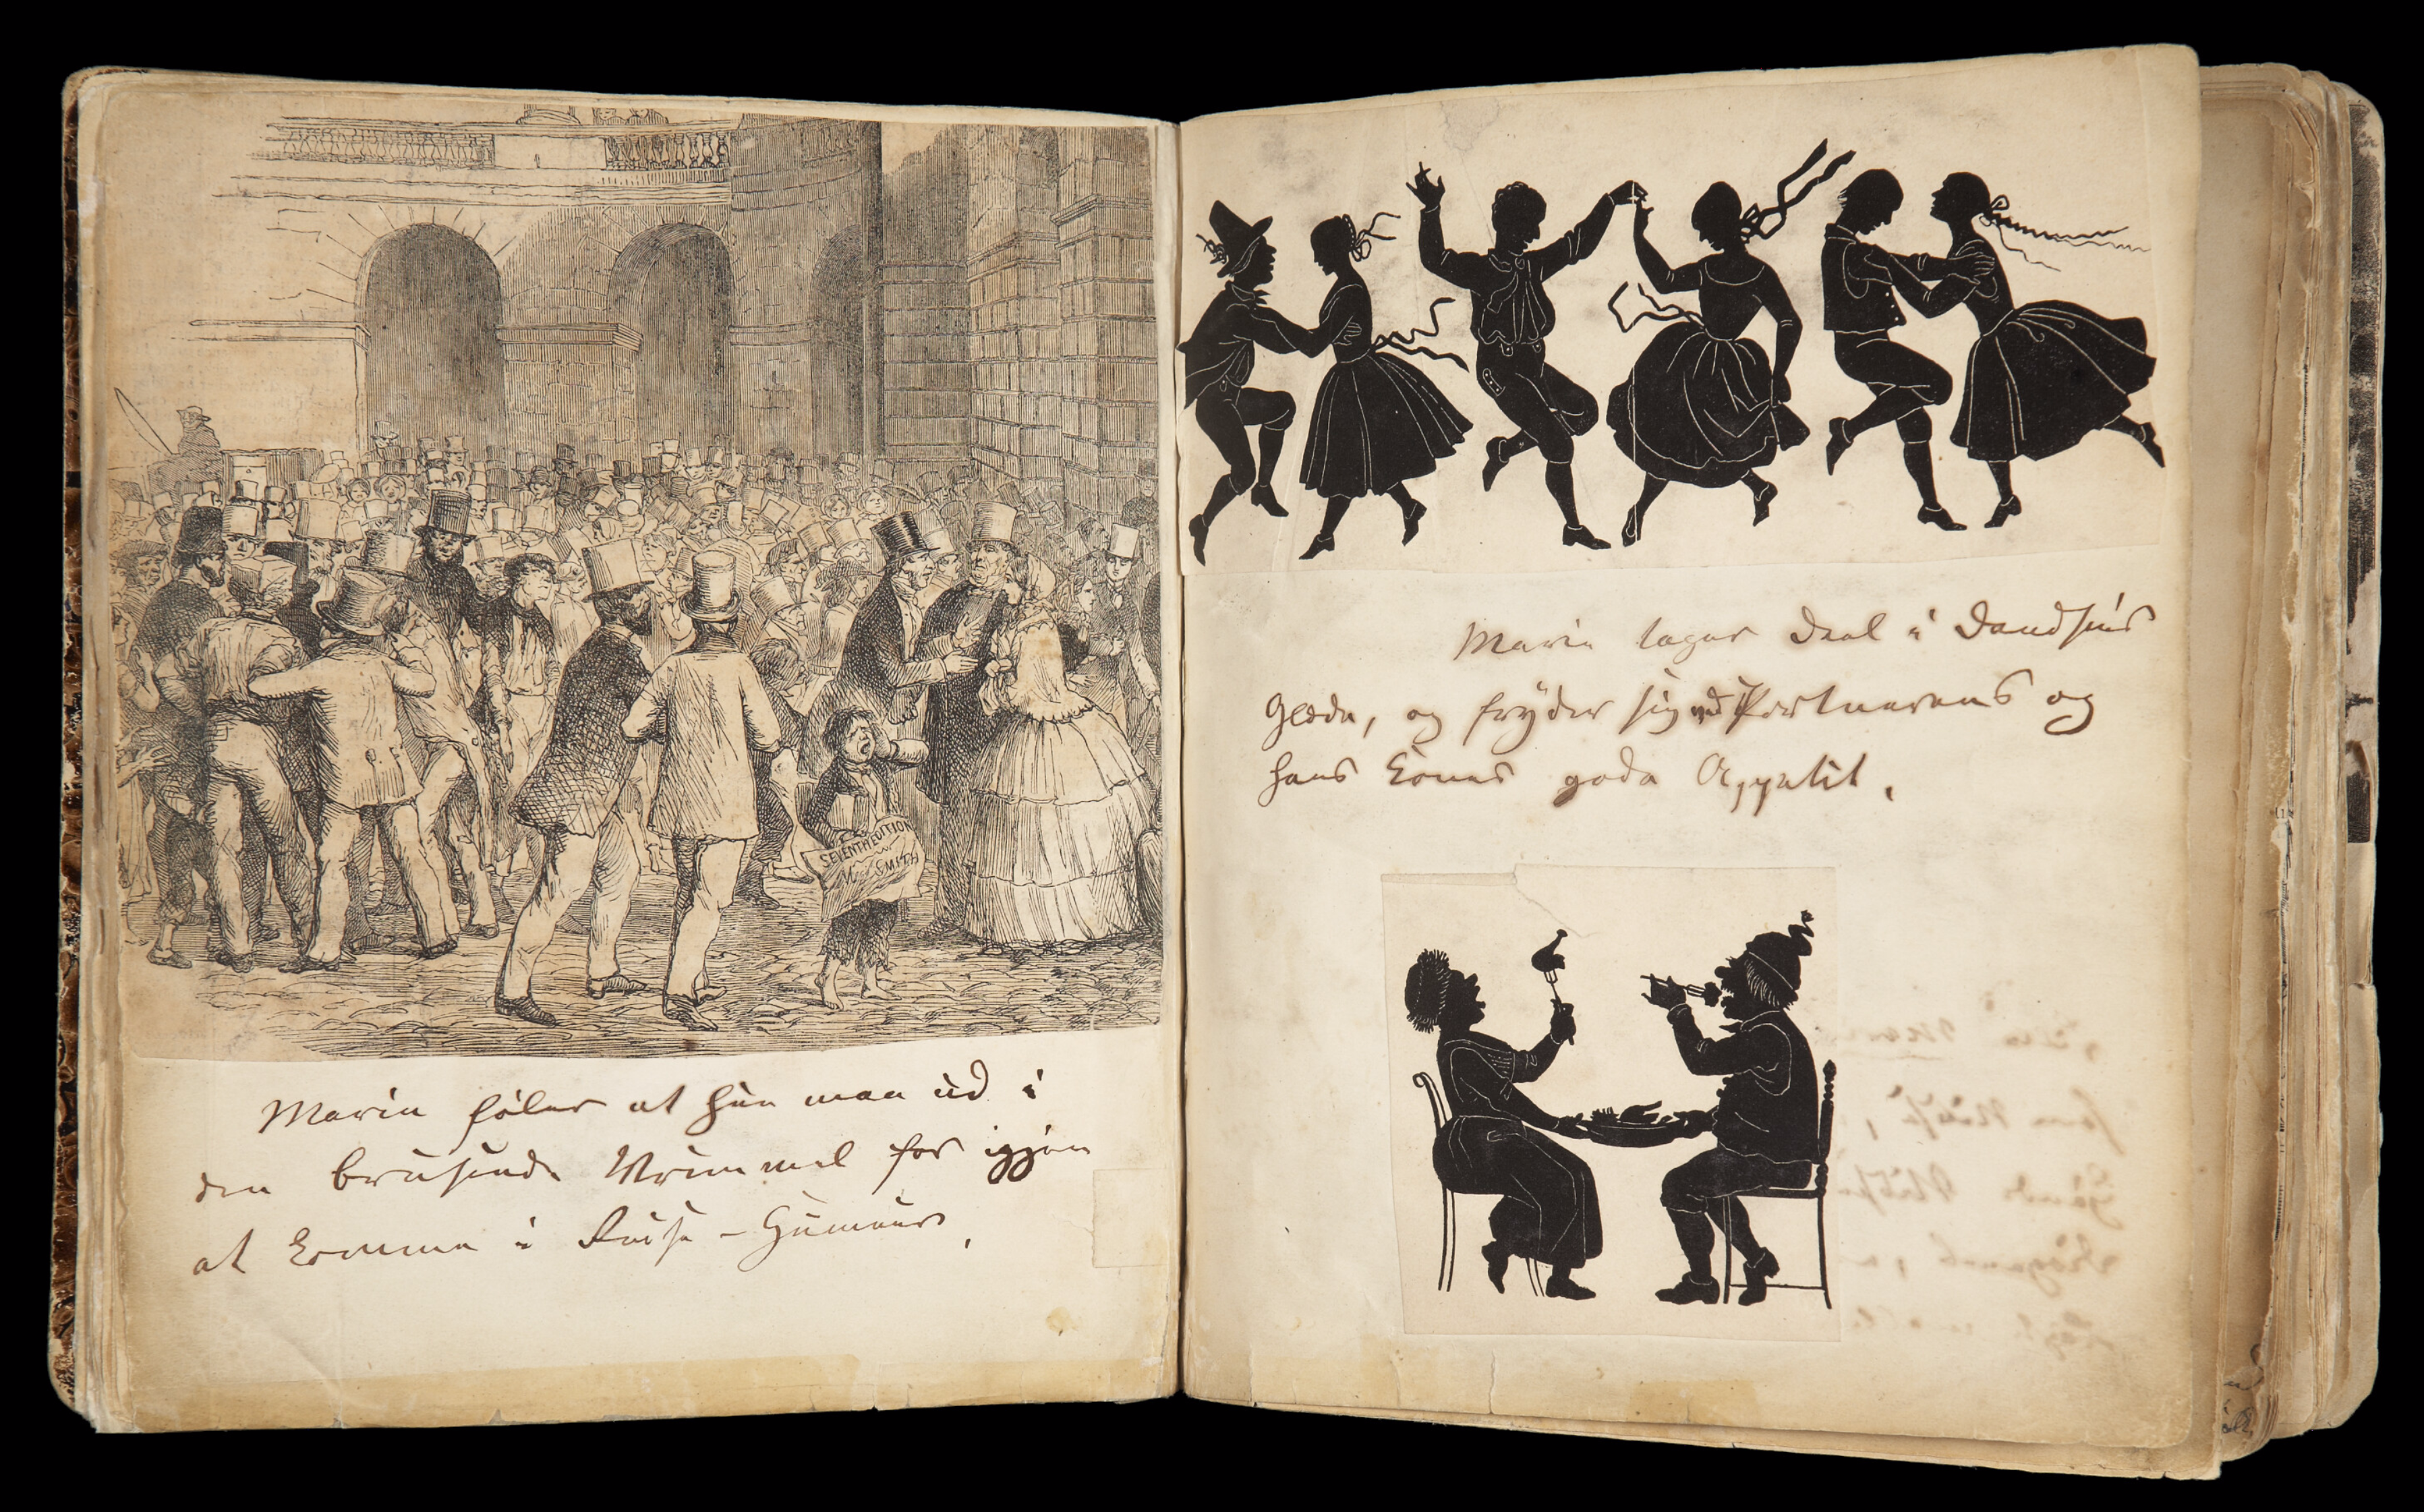 SEVENTH EDITION
SMITH
Marie føler at hun maa ud i
den brusende Vrimmel for igjen
at komme i Reise-Humeur,
Marie tager Deel i Dandsens
Glæde, og fryder sig ved Portnerens og
hans Kones gode Appetit,